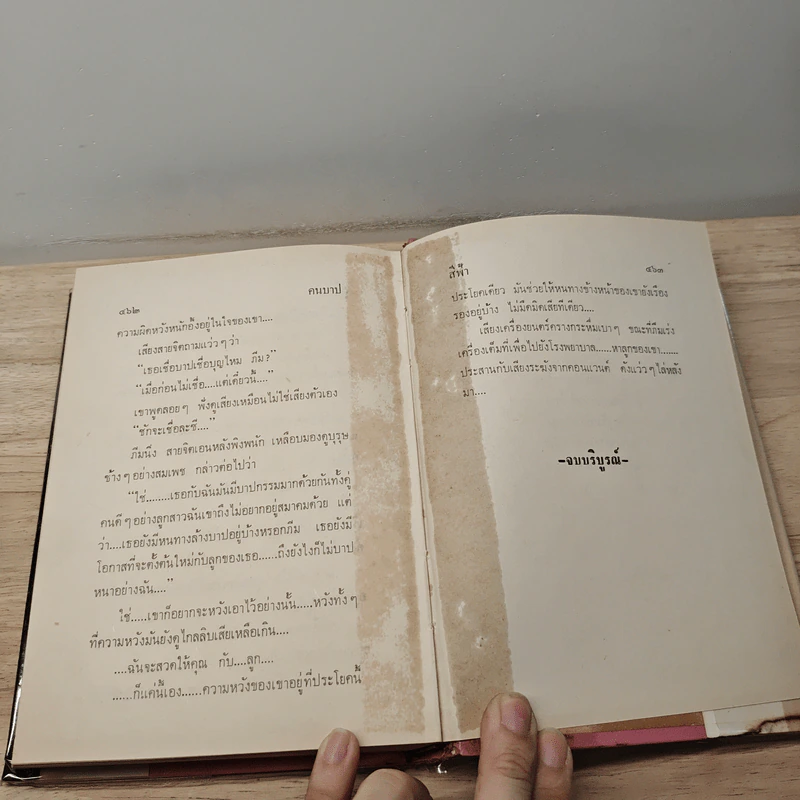 ๔๖๒
คนบาป
ความผิดหวังหนักอึ้งอยู่ในใจของเขา....
เสียงสายจิตถามแว่ว ๆ ว่า
“เธอเชื่อบาปเชื่อบุญไหม ภีม?”
“เมื่อก่อนไม่เชื่อ....แต่เดี๋ยวนี้....”
เขาพูดลอย ๆ ฟังดูเสียงเหมือนไม่ใช่เสียงตัวเอง
“ชักจะเชื่อละซี....”
ภีมนิ่ง สายจิตเอนหลังพิงพนัก เหลือบมองดูบุรุษ
ข้าง ๆ อย่างสมเพช กล่าวต่อไปว่า
“ใช่........เธอกับฉันมันมีบาปกรรมมากด้วยกันทั้งคู่
คนดี ๆ อย่างลูกสาวฉันเขาถึงไม่อยากอยู่สมาคมด้วย แต่
ว่า....เธอยังมีหนทางล้างบาปอยู่บ้างหรอกภีม เธอยังมี
โอกาสที่จะตั้งต้นใหม่กับลูกของเธอ......ถึงยังไงก็ไม่บาป
หนาอย่างฉัน....”
ใช่.....เขาก็อยากจะหวังเอาไว้อย่างนั้น.....หวังทั้ง ๆ
ที่ความหวังมันยังดูไกลลิบเสียเหลือเกิน....
....ฉันจะสวดให้คุณ กับ....ลูก....
......ก็แค่นี้เอง......ความหวังของเขาอยู่ที่ประโยคนี้
สีฟ้า
๔๖๓
ประโยคเดียว มันช่วยให้หนทางข้างหน้าของเขายังเรือง
รองอยู่บ้าง ไม่มืดมิดเสียทีเดียว....
เสียงเครื่องยนต์ครางกระหึ่มเบา ๆ ขณะที่ภีมเร่ง
เครื่องเต็มที่เพื่อไปยังโรงพยาบาล......หาลูกของเขา.......
ประสานกับเสียงระฆังจากคอนแวนต์ ดังแว่ว ๆ ไล่หลัง
มา....
–จบบริบูรณ์–